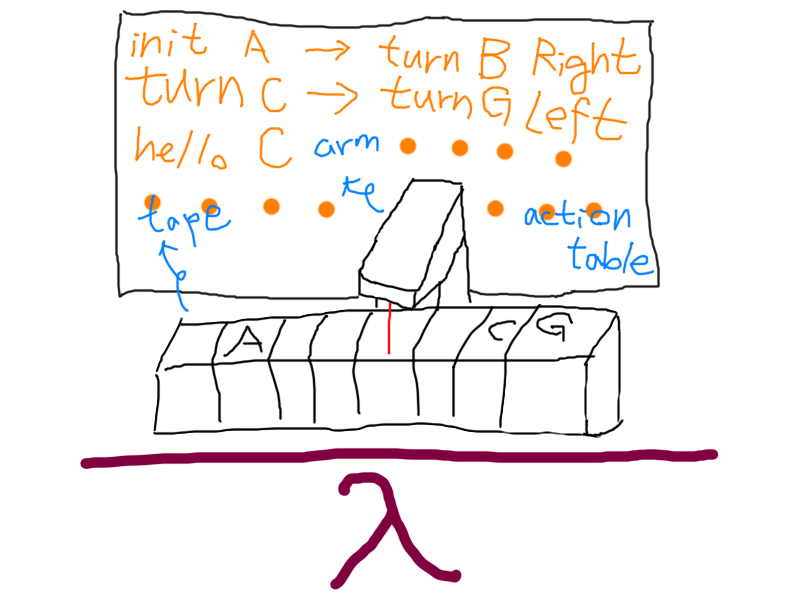 init A → turn B Right
turn C → turn G Left
hello C
arm
tape
action
table
A C G
λ